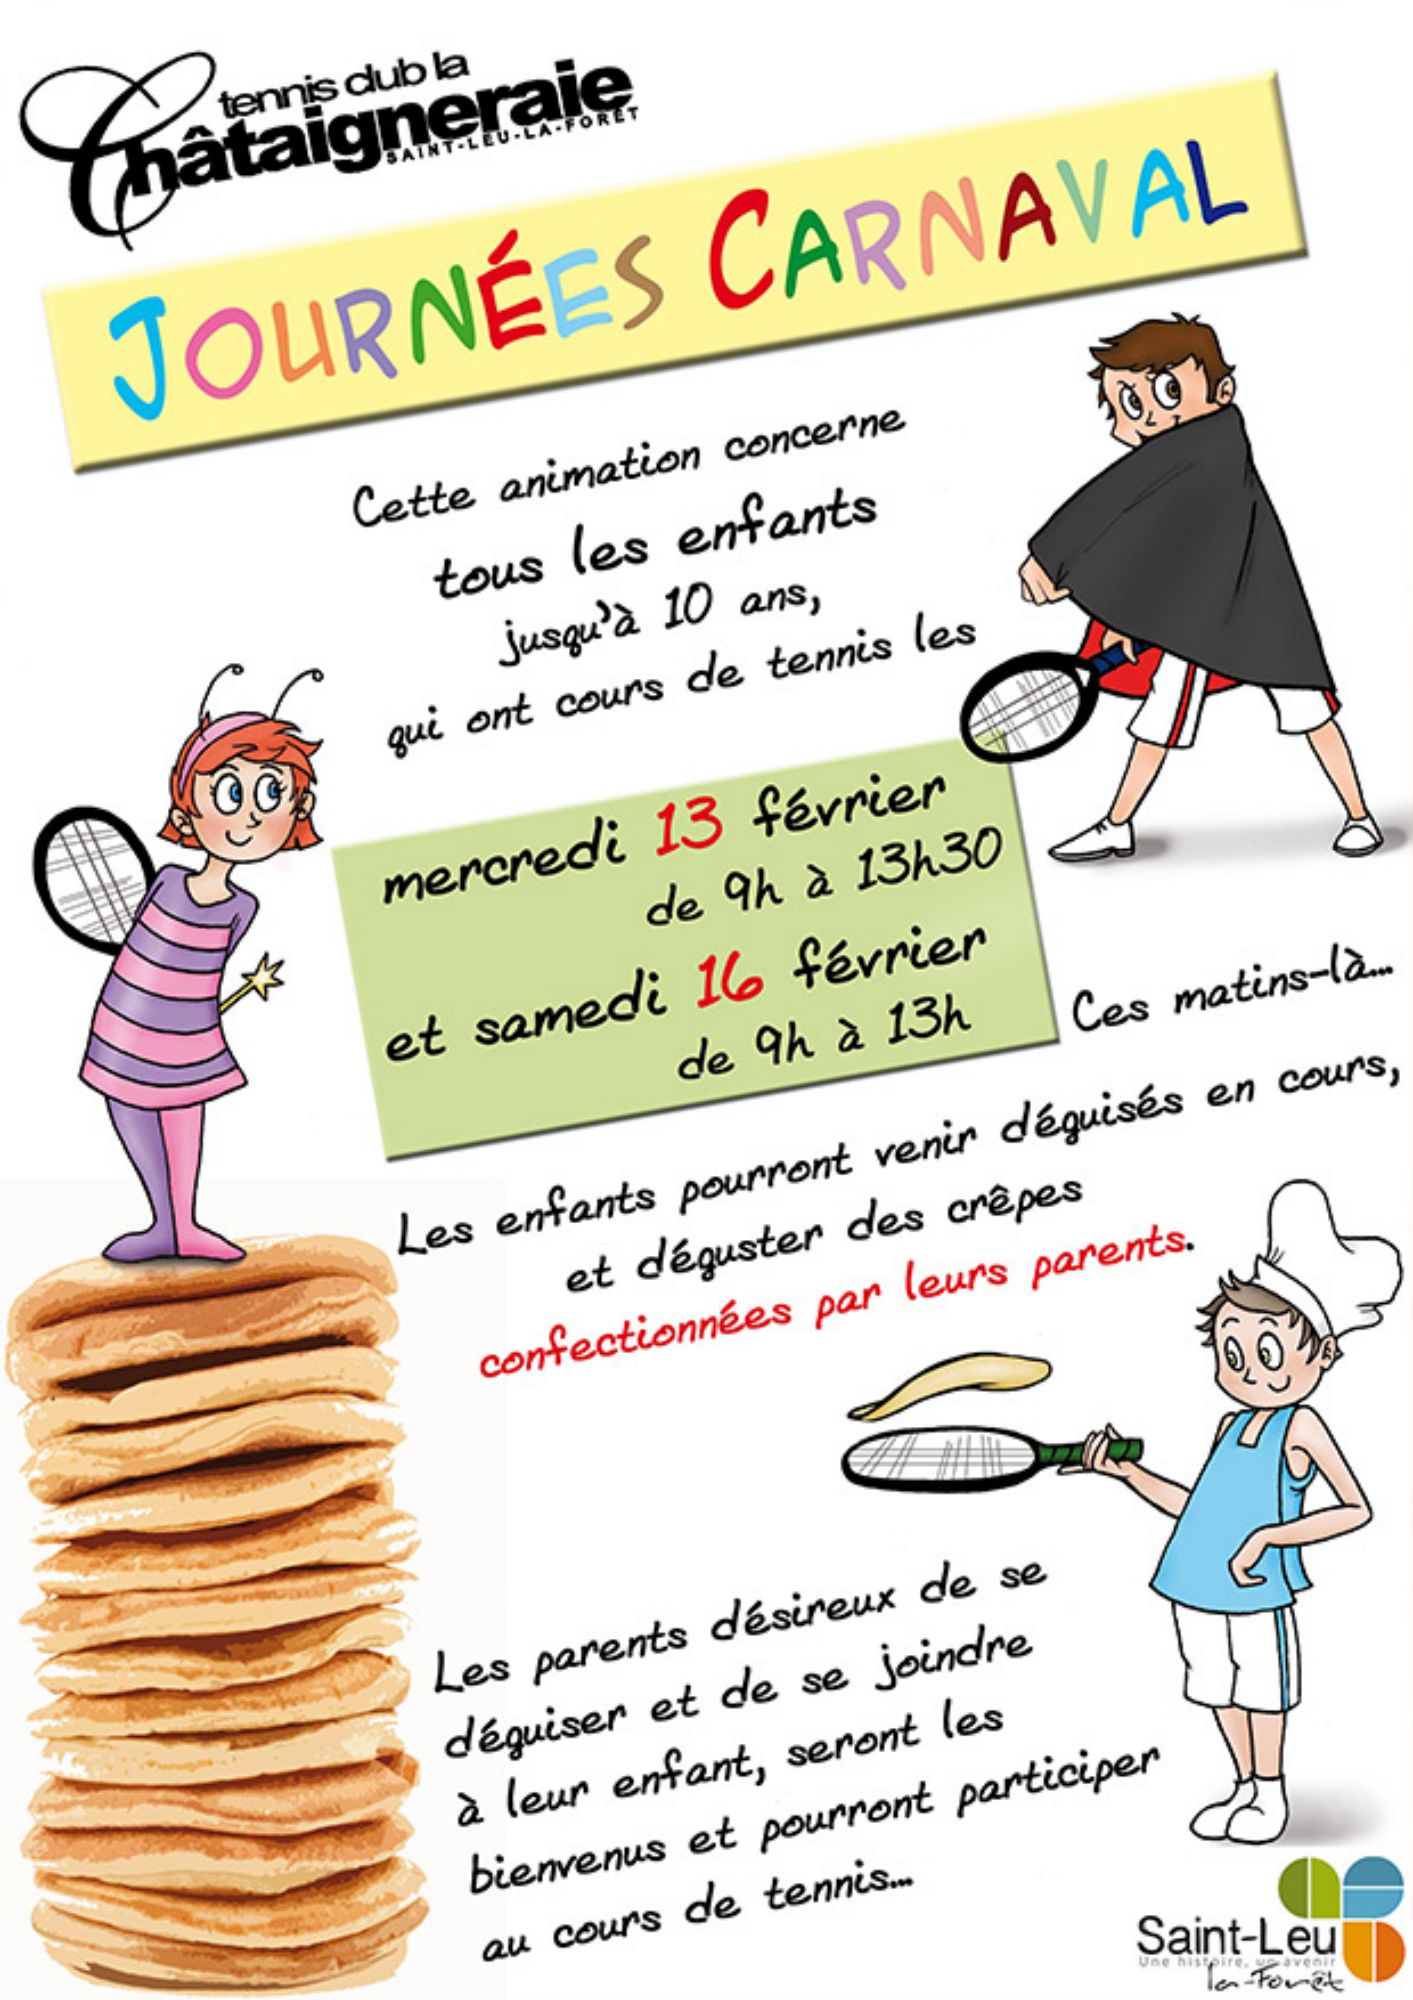 tennis club la
Châtaigneraie
SAINT-LEU-LA-FORÊT
JOURNÉES CARNAVAL
Cette animation concerne
tous les enfants
jusqu'à 10 ans,
qui ont cours de tennis les
mercredi 13 février
de 9h à 13h30
et samedi 16 février
de 9h à 13h
Ces matins-là...
Les enfants pourront venir déguisés en cours,
et déguster des crêpes
confectionnées par leurs parents.
Les parents désireux de se
déguiser et de se joindre
à leur enfant, seront les
bienvenus et pourront participer
au cours de tennis...
Saint-Leu
Une histoire, un avenir
la-Forêt